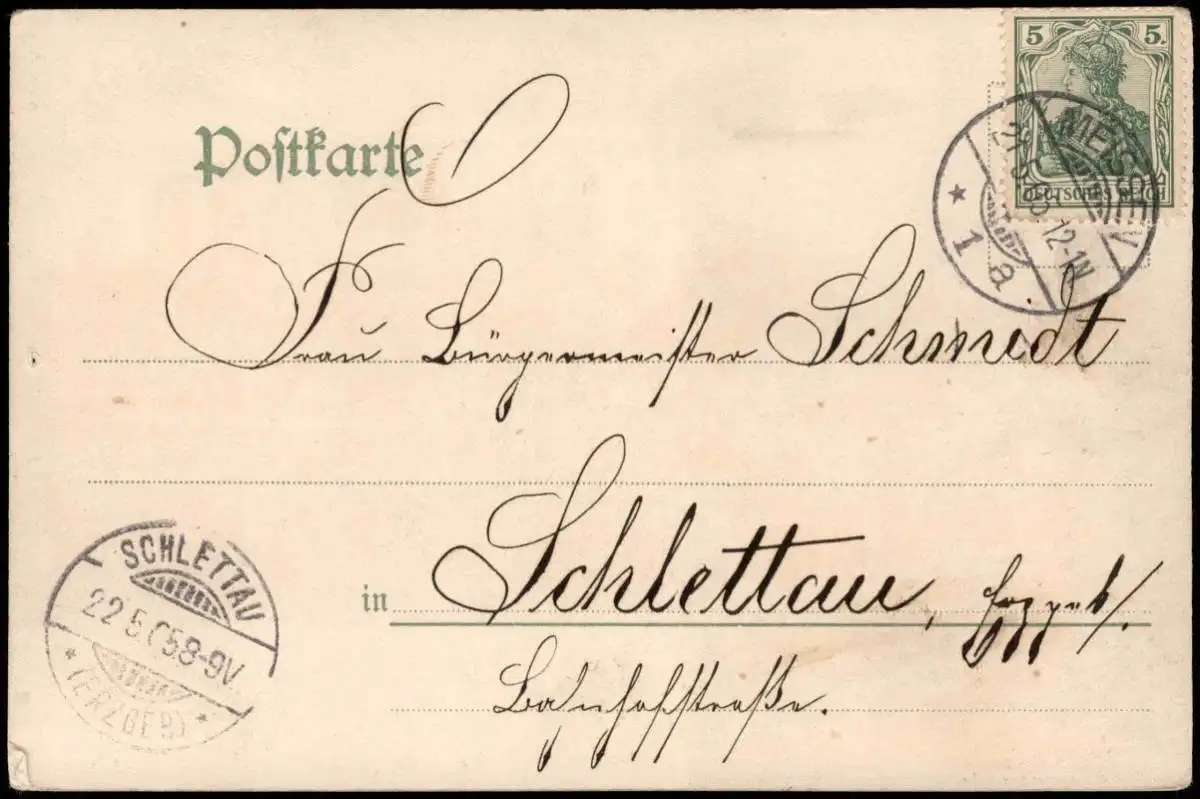 Poſtkarte
5 5.
DEUTSCHES REICH
MEISSEN
12-1N
* 1 a
Frau Bürgermeister Schmidt
in Schlettau, Erzgeb/.
Bahnhofstraße.
SCHLETTAU
22 5 05 8-9V
* (ERZGEB) *